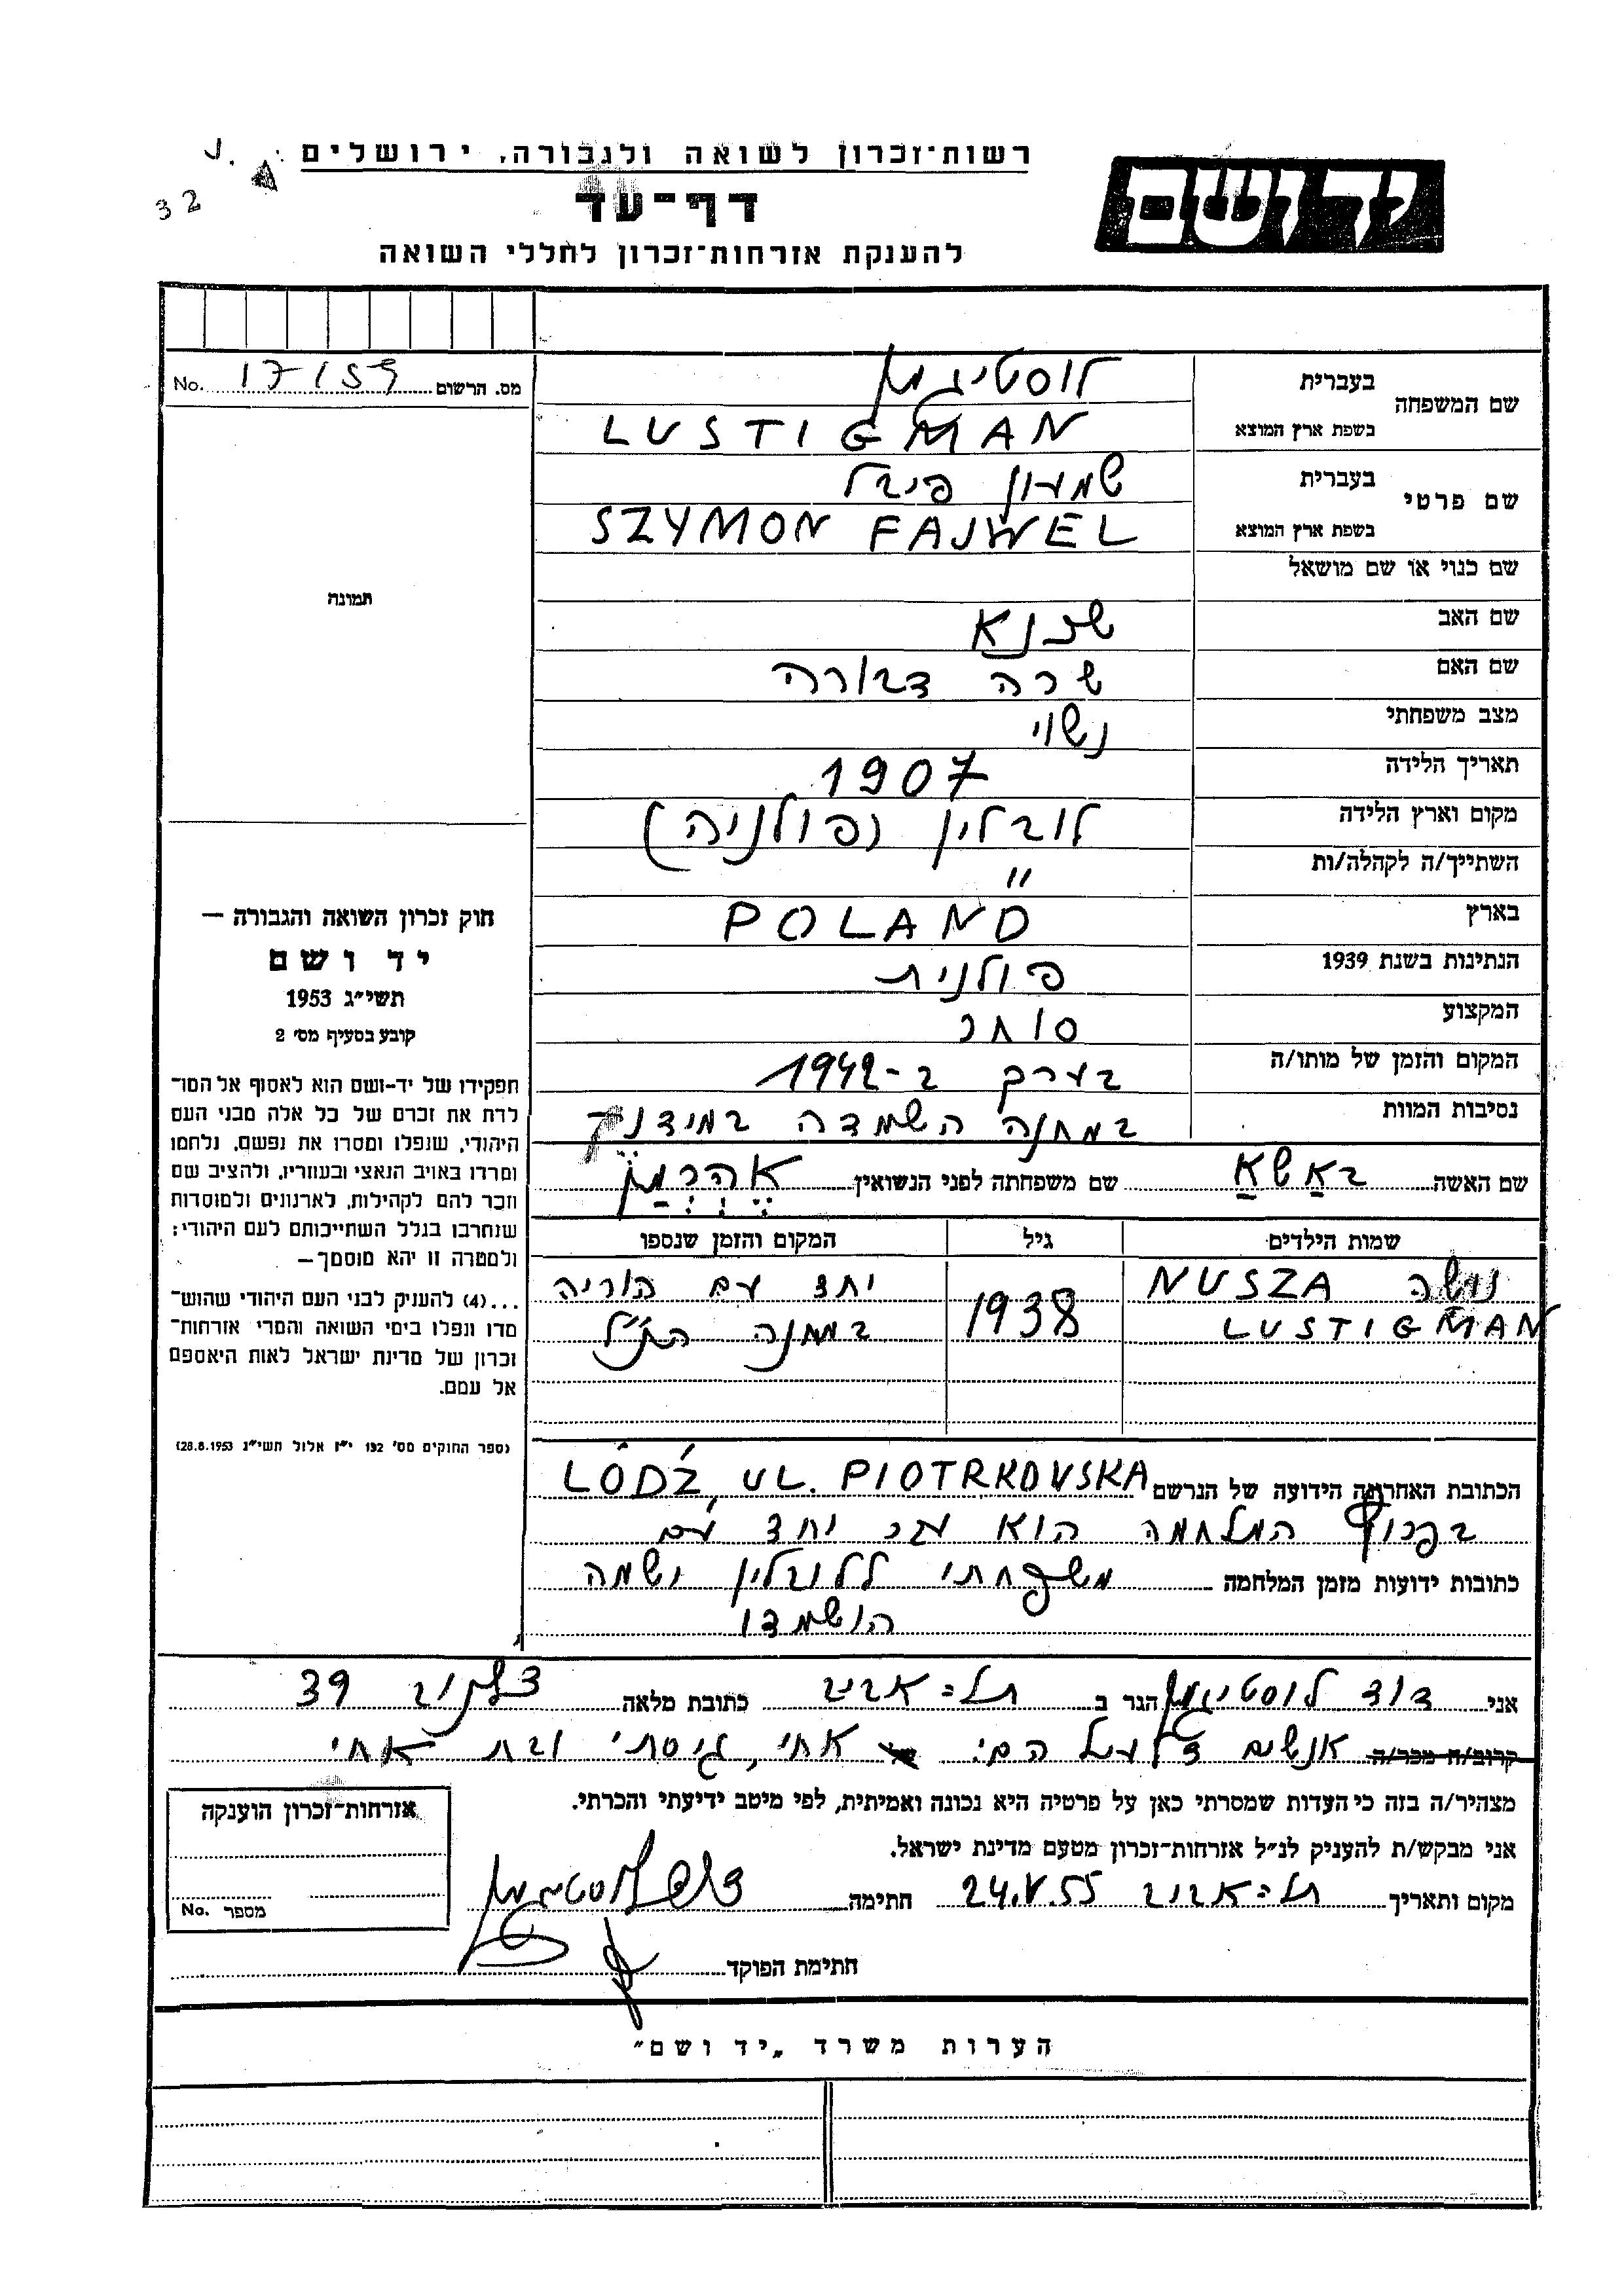 רשות־זכרון לשואה ולגבורה, ירושלים
יד ושם
32
דף־עד
להענקת אזרחות־זכרון לחללי השואה
מס. הרשום 17159 No.
שם המשפחה בעברית לוסטיגמן
בשפת ארץ המוצא LUSTIGMAN
שם פרטי בעברית שמעון פיבל
בשפת ארץ המוצא SZYMON FAJWEL
שם כנוי או שם מושאל
שם האב שכנא
שם האם שרה דבורה
מצב משפחתי נשוי
תאריך הלידה 1907
מקום וארץ הלידה לובלין (פולניה)
השתייך/ה לקהלה/ות "
בארץ POLAND
הנתינות בשנת 1939 פולנית
המקצוע סוחר
המקום והזמן של מותו/ה בערך ב-1942
נסיבות המוות במחנה השמדה במידנק
שם האשה באשא שם משפחתה לפני הנשואין
שמות הילדים גיל המקום והזמן שנספו
נושה NUSZA 1938 יחד עם הוריה
LUSTIGMAN במחנה הנ"ל
הכתובת האחרונה הידועה של הנרשם ŁÓDŹ, UL. PIOTRKOVSKA
בפרוץ המלחמה הוא עבר יחד עם
כתובות ידועות מזמן המלחמה משפחתו ללובלין ושמה
הושמדו
תמונה
חוק זכרון השואה והגבורה —
יד ושם
תשי״ג 1953
קובע בסעיף מס׳ 2
תפקידו של יד־ושם הוא לאסוף אל המו־
לדת את זכרם של כל אלה מבני העם
היהודי, שנפלו ומסרו את נפשם, נלחמו
ומרדו באויב הנאצי ובעוזריו, ולהציב שם
וזכר להם לקהילות, לארגונים ולמוסדות
שנחרבו בגלל השתייכותם לעם היהודי;
ולמטרה זו יהא מוסמך—
...(4) להעניק לבני העם היהודי שהוש־
מדו ונפלו בימי השואה והמרי אזרחות־
זכרון של מדינת ישראל לאות היאספם
אל עמם.
(ספר החוקים מס׳ 132 י״ז אלול תשי״ג 28.8.1953)
אני דוד לוסטיגמן הגר ב תל-אביב כתובת מלאה 39
קרוב/ה מכר/ה אנשים דלעיל הם: אחי, גיסתי ובת אחי
מצהיר/ה בזה כי העדות שמסרתי כאן על פרטיה היא נכונה ואמיתית, לפי מיטב ידיעתי והכרתי.
אני מבקש/ת להעניק לנ״ל אזרחות־זכרון מטעם מדינת ישראל.
מקום ותאריך תל-אביב 24.V.55 חתימה דוד לוסטיגמן
חתימת הפוקד
אזרחות־זכרון הוענקה
מספר No.
הערות משרד „יד ושם״